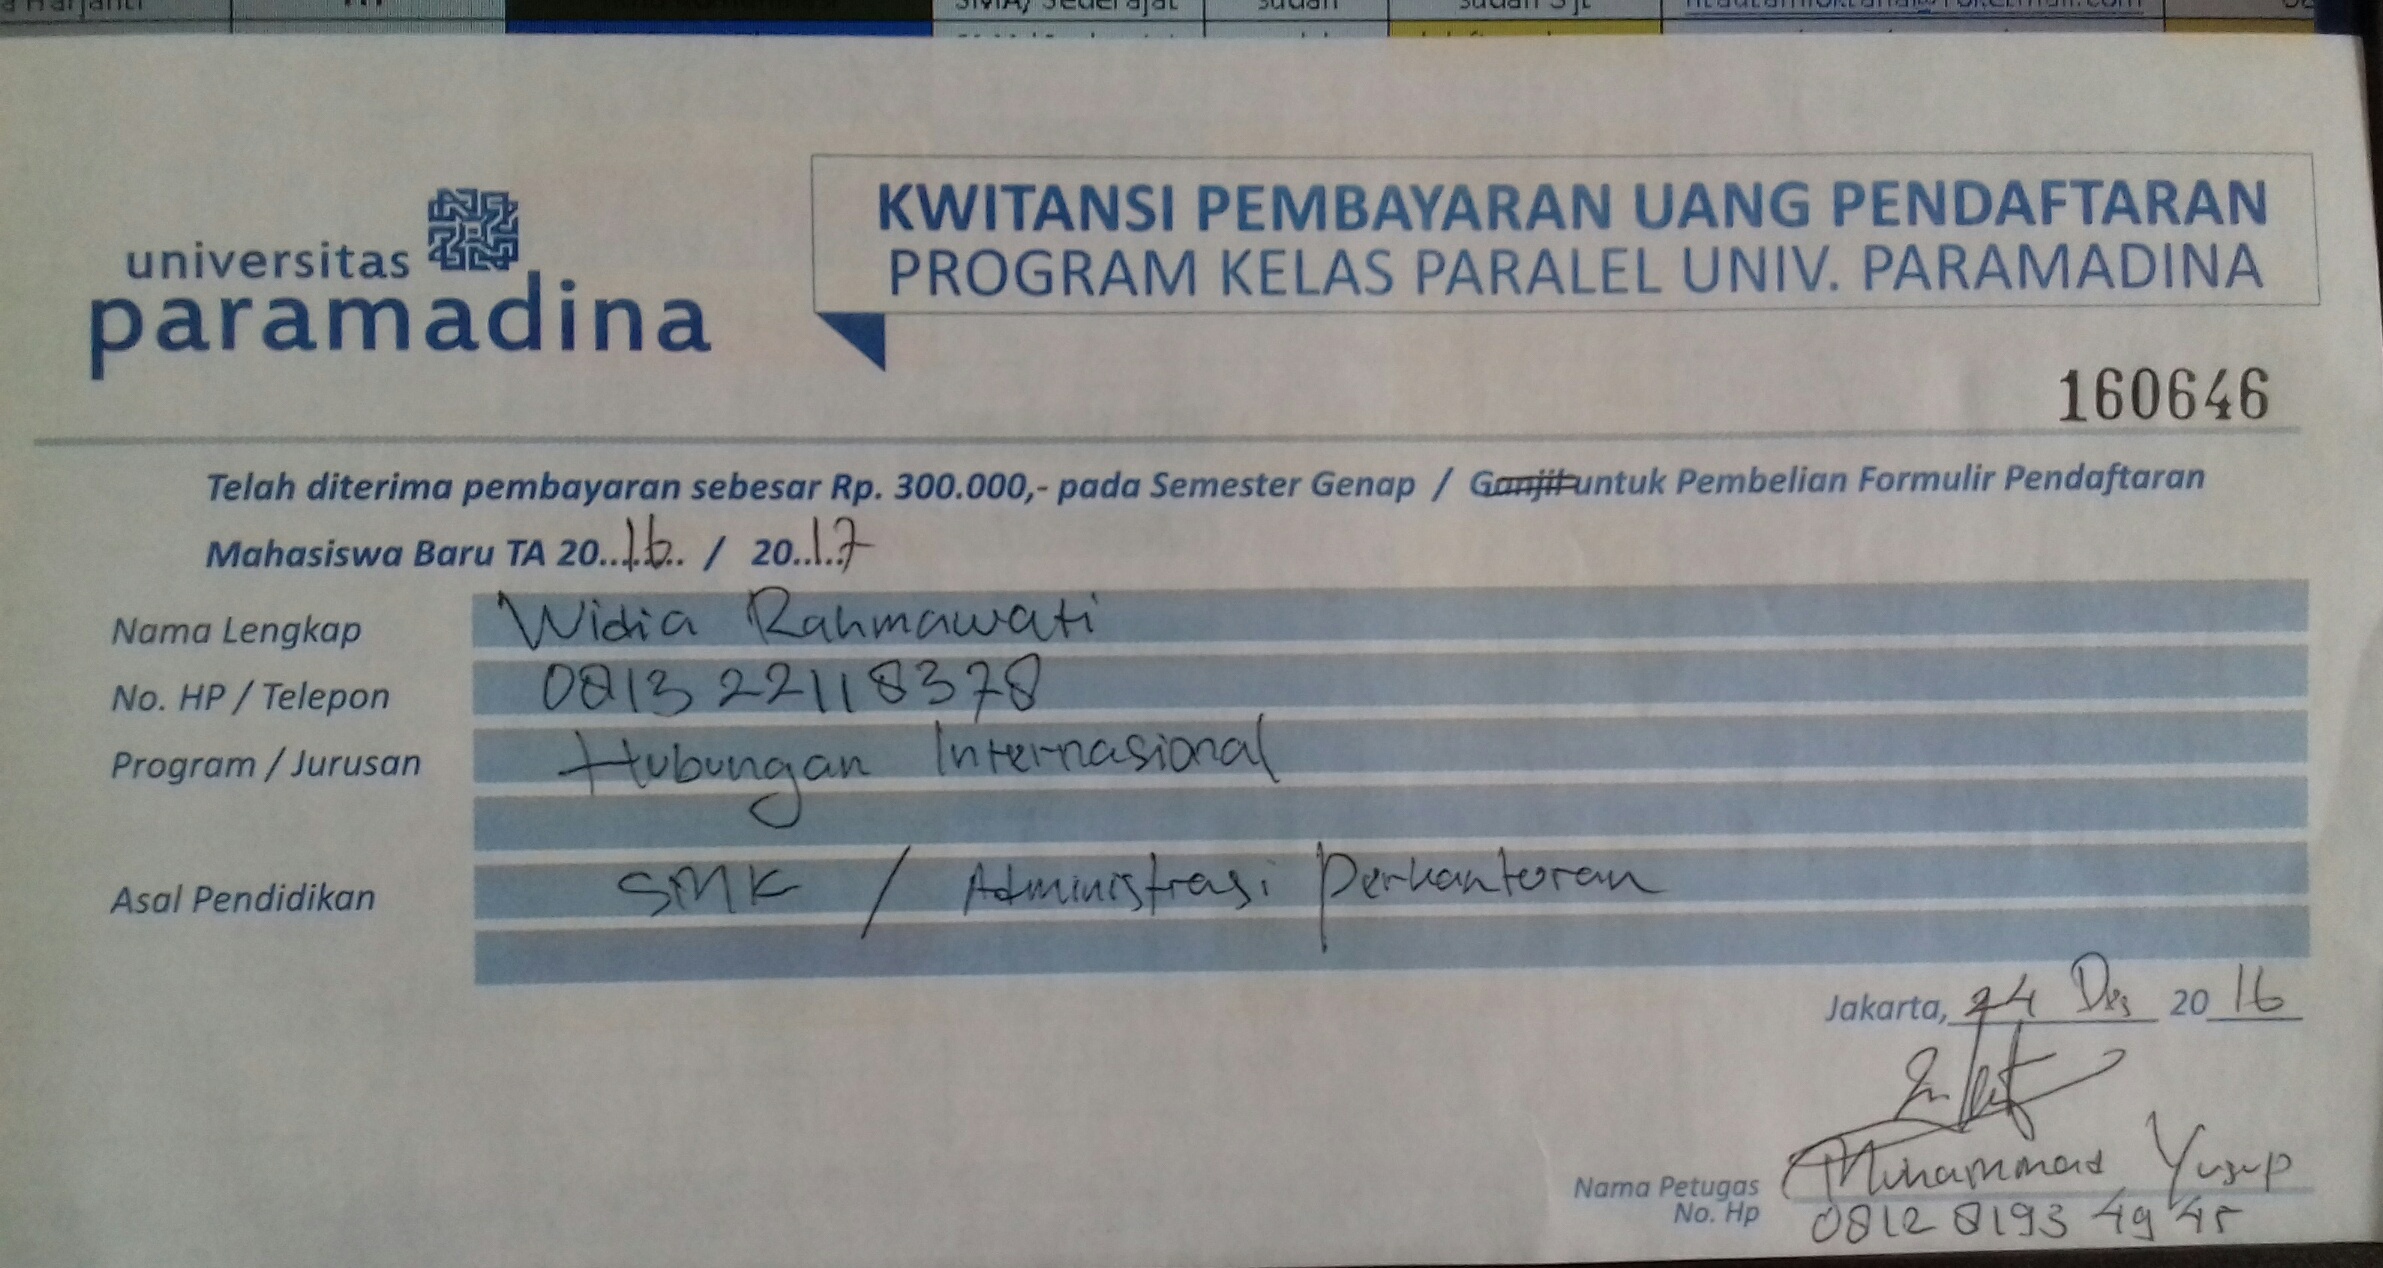 SMA/ Sederajat sudah
universitas
paramadina
KWITANSI PEMBAYARAN UANG PENDAFTARAN
PROGRAM KELAS PARALEL UNIV. PARAMADINA
160646
Telah diterima pembayaran sebesar Rp. 300.000,- pada Semester Genap / Ganjil untuk Pembelian Formulir Pendaftaran
Mahasiswa Baru TA 20..16.. / 20..17
Nama Lengkap Widia Rahmawati
No. HP / Telepon 0813 22118378
Program / Jurusan Hubungan Internasional
Asal Pendidikan SMK / Administrasi Perkantoran
Jakarta, 24 Des 20 16
Nama Petugas Muhammad Yusup
No. Hp 0812 8193 49 45